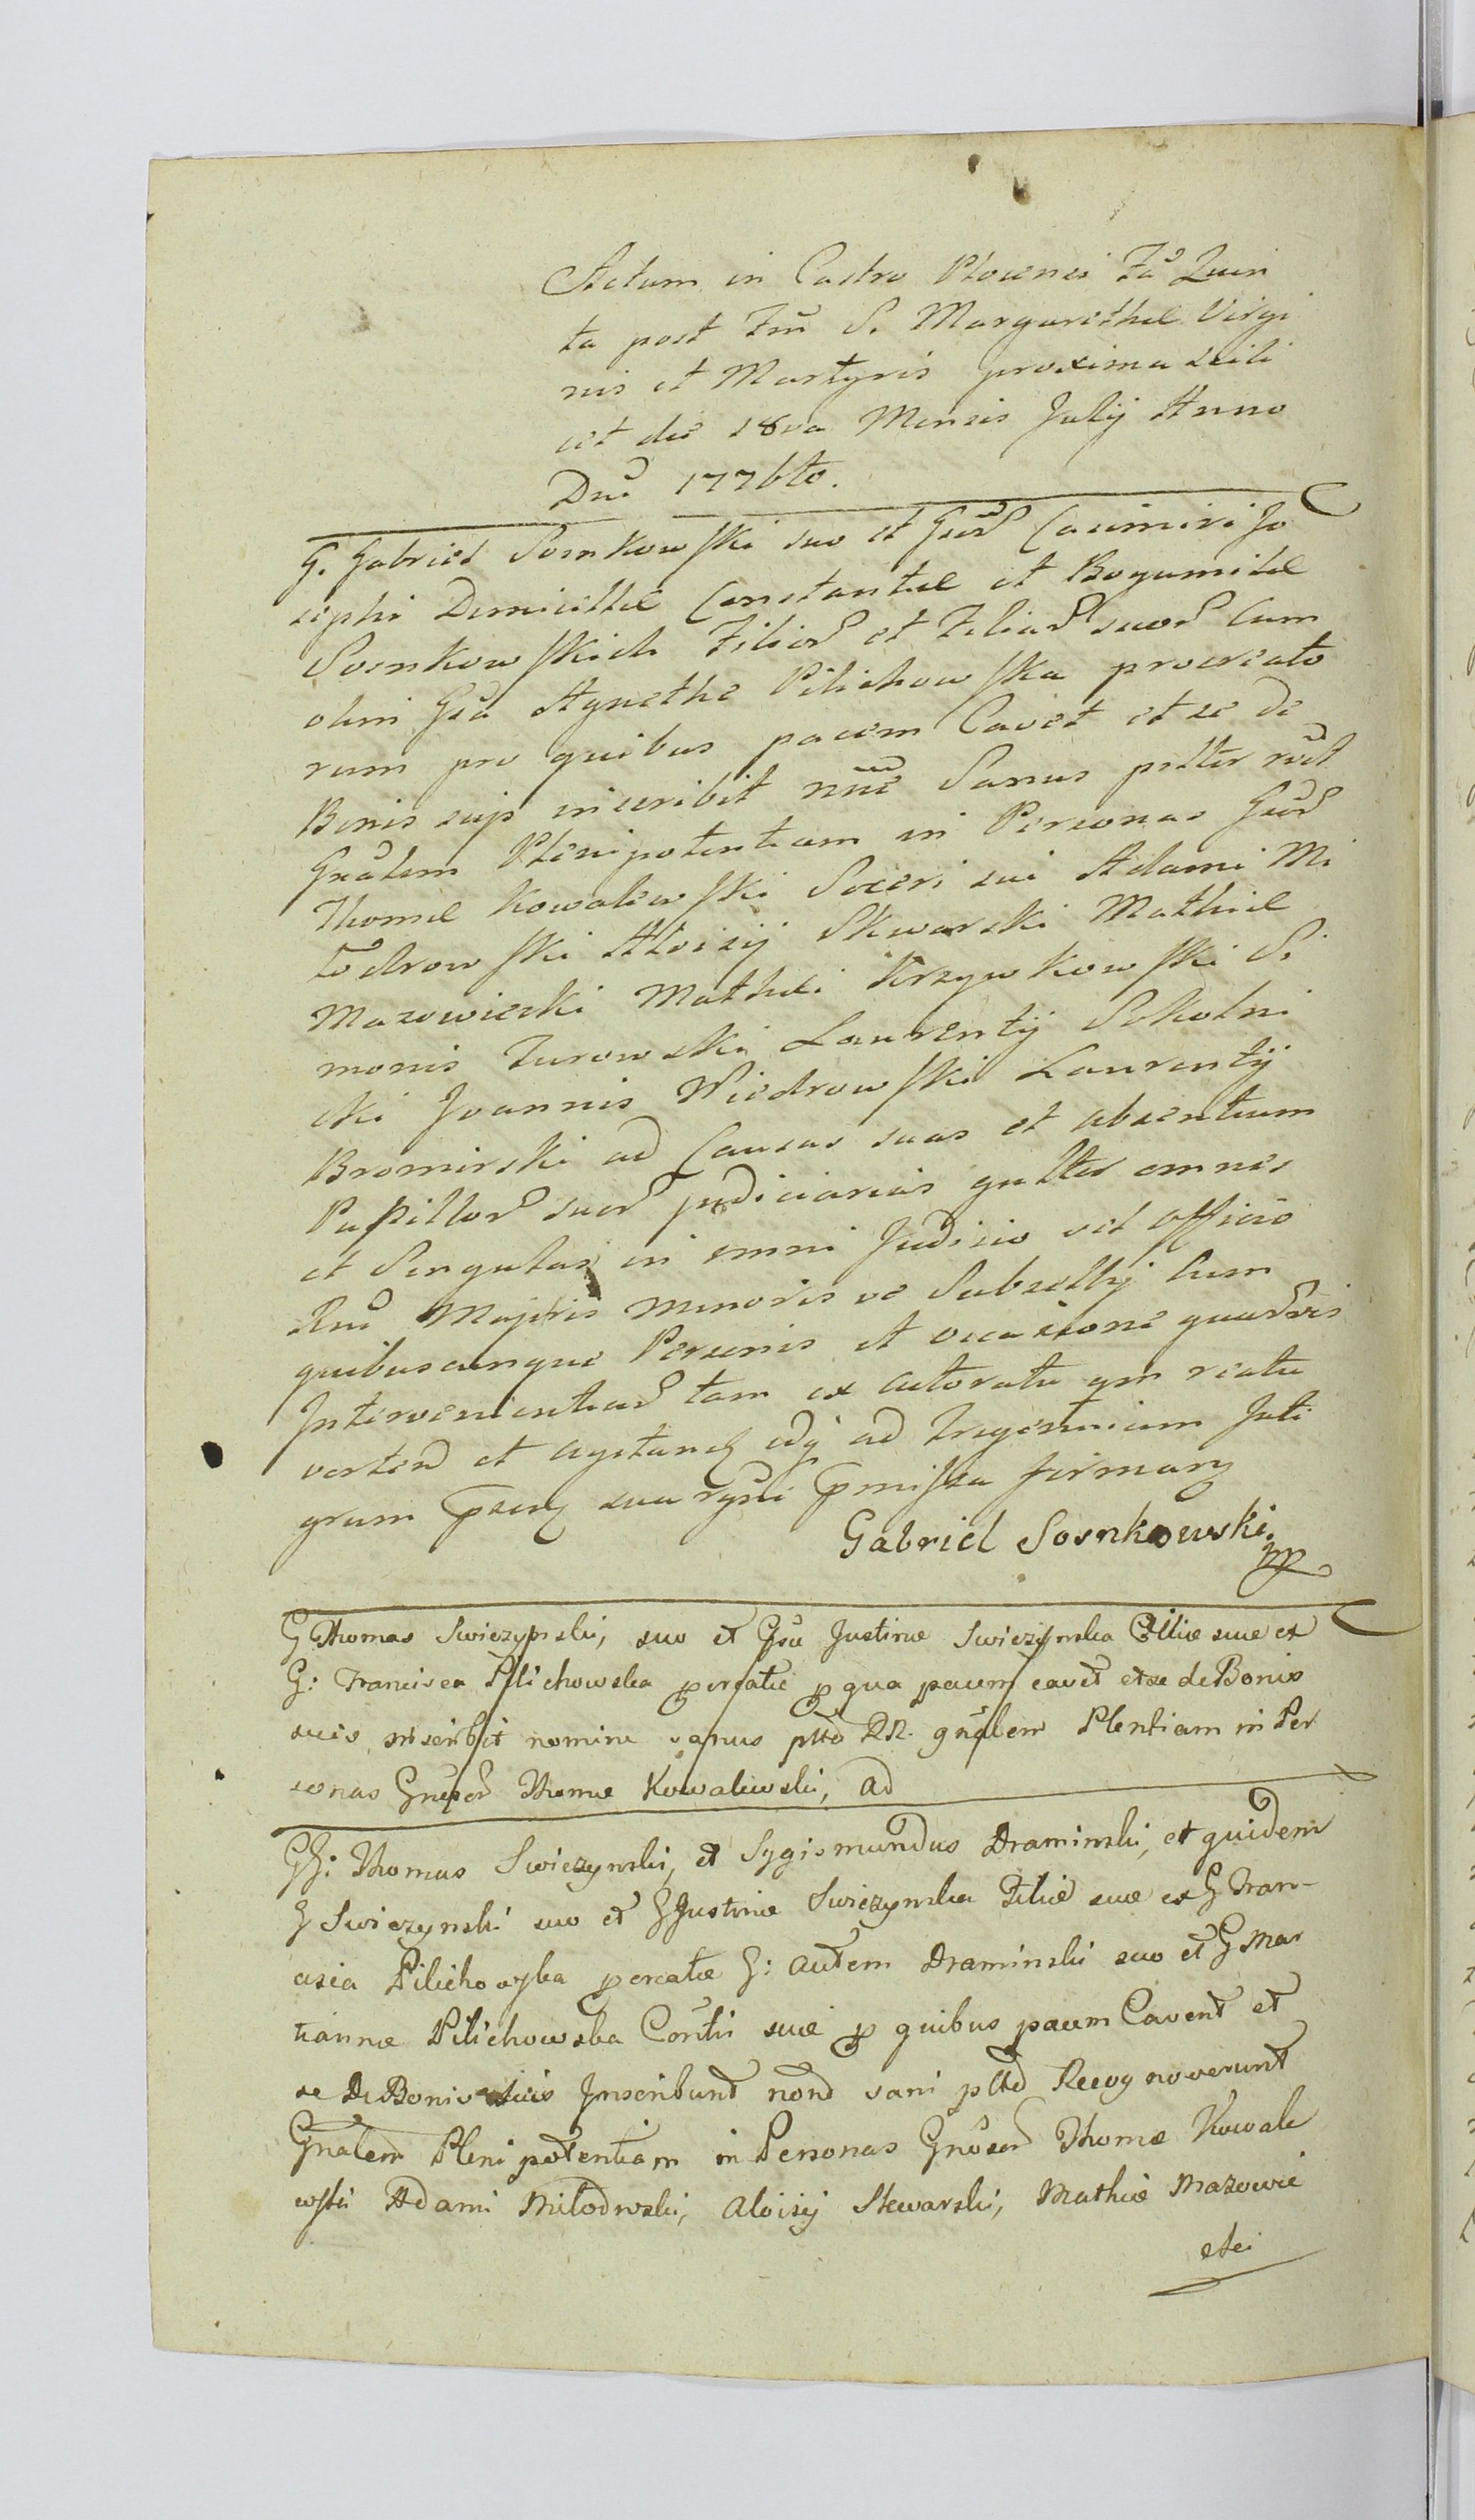 Actum in Castro Plocensi Fa Quin
ta post Fm S. Margarethae Virgi
nis et Martyris proxima scili
cet die 18va Mensis Julij Anno
Dni 1776to.
G. Gabriel Sosnkowski suo et Gsor Casimiri Jo
sephi Domicellae Constantiae et Bogumilae
Sosnkowskich Filior et Filiar suor cum
olim Gsa Agnethe Pilichowska procreato
rum pro quibus pacem Cavet et se de
Bonis suis inscribit nne Sanus pltter rndt
Gnalem Plenipotentiam in Personas Gsor
Thomae Kowalewski Soceri sui Adami Mi
lodrowski Aloisij Skwarski Mathiae
Mazowiecki Mathei Krzywkowski Si
monis Turowski Laurentij Sokolni
cki Joannis Wiedrowski Laurentij
Bromirski ad Causas suas et absentium
Pupillor suor judiciarias gnltter omnes
et Singulas in omni Judicio vel Officio
Rni Majoris minoris ve Subsellij cum
quibuscunque Personis et occasione quarvis
Intervenientiar tam ex actoratu qm reatu
verten et agitand usq ad Tregennium Inte
grum psens sua rgni pmissa firmans
Gabriel Sosnkowski
mp
G Thomas Swiezynski, suo et Gsa Justinae Swiezynska Filiae suae ex
G: Francisca Pilichowska pcreatae p qua pacem cavet et se de Bonis
suis inscribit nomine sanus pltter RR. gnalem Plentiam in Per
sonas Gnrsor Thomae Kowalewski, ad
GG: Thomas Swiezynski, et Sygismundus Draminski, et quidem
G Swiezynski suo et G Justinae Swiezynska Filiae suae ex G Fran-
cisca Pilichowska pcreatae G: autem Draminski suo et G Mar
iannae Pilichowska Conthi suae p quibus pacem Cavent et
se de Bonis suis Inscribunt nomd sani pltter Recognoverunt
Gnalem Plenipotentiam in Personas Gnrosor Thomae Kowale
wski Adami Milodrowski, Aloisij Skwarski, Mathiae Mazowie
cki